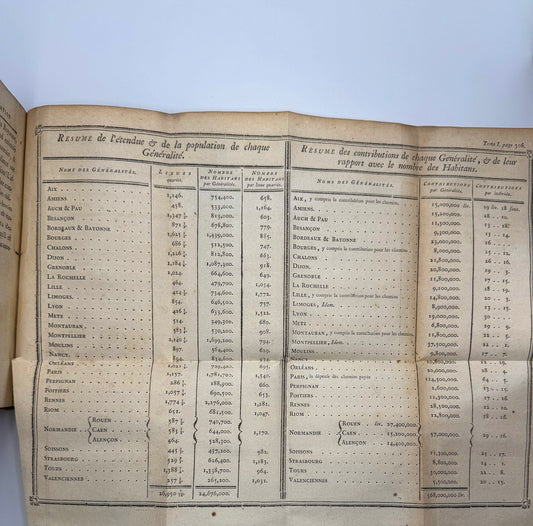 Tome I. page 306.
RÉSUMÉ de l'étendue & de la population de chaque
Généralité.
NOMS DES GÉNÉRALITÉS. LIEUES quarrées. NOMBRE DES HABITANS par Généralité. NOMBRE DES HABITANS par lieue quarrée.
AIX 1,146. 754,400. 658.
AMIENS 458. 533,000. 1,164.
AUCH & PAU 1,347 813,000. 603.
BESANÇON 871 678,800. 779.
BORDEAUX & BAYONNE 1,625 1,439,000. 885.
BOURGES 686 512,500. 747.
CHALONS 1,226 812,800. 663.
DIJON 1,184 918.
GRENOBLE 1,024. 664,600. 649.
LA ROCHELLE 464. 479,700. 1,034.
LILLE 414 734,600. 1,772.
LIMOGES. 854. 646,500. 757.
LYON 416 633,600. 1,522.
METZ 514. 349,300. 680.
MONTAUBAN 583 530,200. 908.
MONTPELLIER
MOULINS 897. 564,400. 629.
NANCY. 894.
ORLÉANS 709,400. 695.
PARIS 1,157. 1,781,700. 1,540.
PERPIGNAN 286 188,900. 660.
POITIERS 1,057 690,500. 653.
RENNES 1,774 2,276,000. 1,282.
RIOM 651. 681,500. 1,047.
ROUEN 587 740,700.
NORMANDIE CAEN 583 644,000. 1,170.
ALENÇON 464. 528,300.
SOISSONS 445 437,200. 982.
STRASBOURG 529 626,400. 1,183.
TOURS 1,388 1,338,700. 964.
VALENCIENNES 257 265,200. 1,031.
24,676,000.
RÉSUMÉ des contributions de chaque Généralité, & de leur
rapport avec le nombre des Habitans.
NOMS DES GÉNÉRALITÉS. CONTRIBUTIONS par Généralités. CONTRIBUTIONS par individu.
AIX, y compris la contribution pour les chemins. 15,000,000 liv. 19 liv. 18 sous.
AMIENS. 15,200,000
AUCH & PAU 11,300,000.
BESANÇON 9,300,000. 13 .. 14.
BORDEAUX & BAYONNE 23,000,000.
BOURGES, y compris la contribution pour les chemins. 8,000,000.
CHALONS 21,800,000. 26 .. 16.
DIJON. 20,800,000.
GRENOBLE
LA ROCHELLE 9,100,000.
LILLE, y compris la contribution pour les chemins. 14,800,000. 20 .. 3.
LIMOGES, Idem.
LYON 19,000,000. 30
METZ 6,800,000. 19 .. 9.
MONTAUBAN, y compris la contribution pour les chemins 11,800,000. 22 .. 5.
MONTPELLIER, Idem. 37,500,000. 22 .. 1.
MOULINS 9,800,000. 17 .. 7.
NANCY 10,800,000. 12 .. 19.
ORLÉANS 20,000,000. 28 .. 4.
PARIS, la dépense des chemins payée 114,500,000. 64 .. 5.
PERPIGNAN 2,600,000. 13 .. 15.
POITIERS 12,300,000. 17 .. 16.
RENNES 28,500,000. 12 .. 10.
RIOM 12,800,000. 18 .. 16.
ROUEN liv. 27,400,000.
NORMANDIE CAEN 15,200,000 57,000,000. 29 .. 16.
ALENÇON 14,400,000
SOISSONS 11,300,000. 25 .. 17.
STRASBOURG 8,800,000. 14 .. 1.
TOURS 30,000,000. 22 .. 8.
VALENCIENNES 5,500,000. 20 .. 15.
568,000,000 liv.